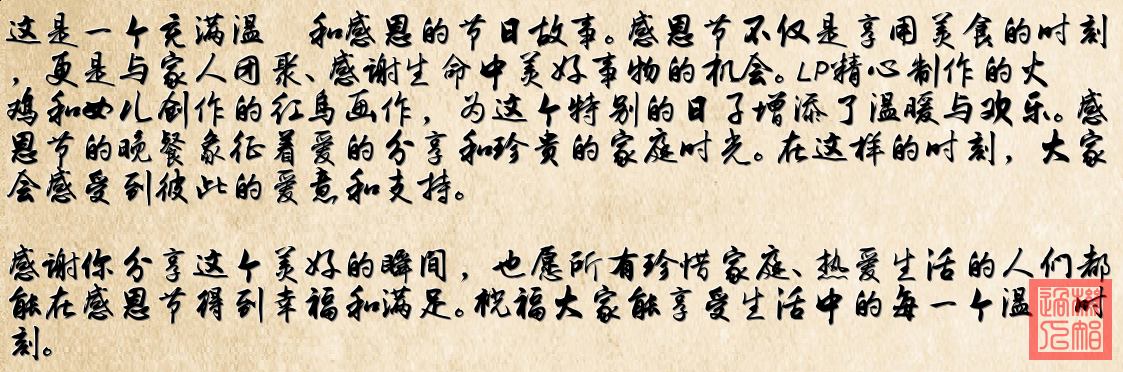 这是一个充满温 和感恩的节日故事。感恩节不仅是享用美食的时刻
，更是与家人团聚、感谢生命中美好事物的机会。LP精心制作的火
鸡和女儿创作的红鸟画作，为这个特别的日子增添了温暖与欢乐。感
恩节的晚餐象征着爱的分享和珍贵的家庭时光。在这样的时刻，大家
会感受到彼此的爱意和支持。
感谢你分享这个美好的瞬间，也愿所有珍惜家庭、热爱生活的人们都
能在感恩节得到幸福和满足。祝福大家能享受生活中的每一个温 时
刻。